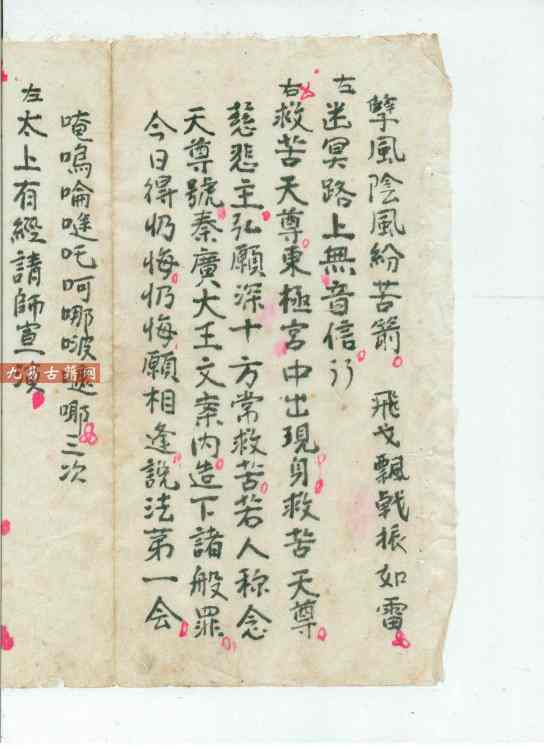 孽風陰風紛苦箭 飛戈飄戟振如雷
左 迷冥路上無音信
右 救苦天尊東極宮中出現身救苦天尊
慈悲主弘願深十方常救苦若人称念
天尊號秦廣大王文案內造下諸般罪
今日得忏悔忏悔願相逢說法第一会
唵嗚唵㖡吒呵哪啵 哪三次
左 太上有經請師宣演
九易古籍网